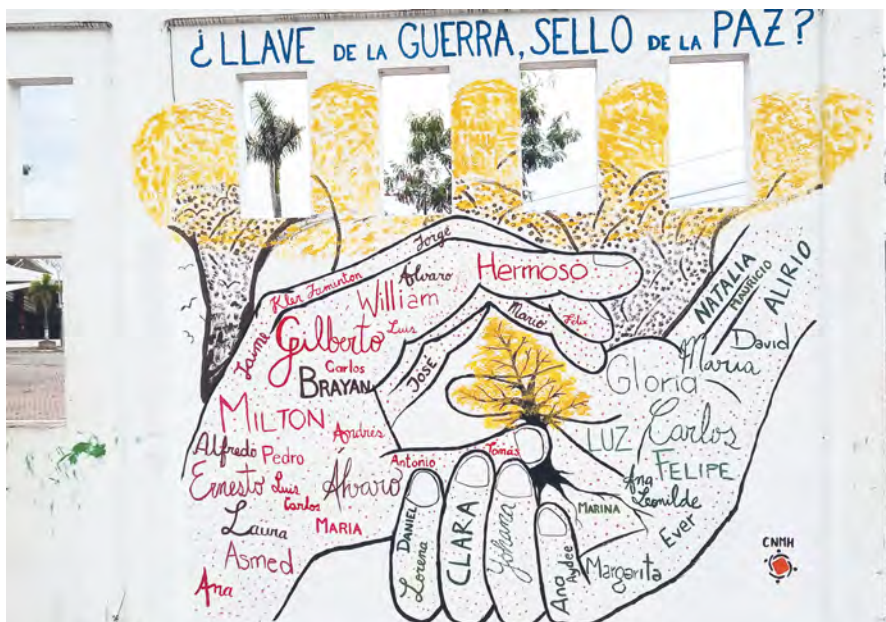 ¿LLAVE DE LA GUERRA, SELLO DE LA PAZ?
Jorge
Kler Jaminton
Álvaro
Hermoso
William
Jaime
Gilberto
Luis
Mario
Felix
Carlos
JOSÉ
BRAYAN
MILTON
Andrés
Alfredo
Pedro
Antonio
Tomás
Ernesto
Luis
Carlos
Álvaro
Laura
MARIA
Asmed
Ana
DANIEL
Lorena
CLARA
Yohana
Ana
Aydee
MARINA
Margarita
NATALIA
MAURICIO
ALIRIO
David
María
Gloria
LUZ
Carlos
FELIPE
Ana
Leonilde
Ever
CNMH